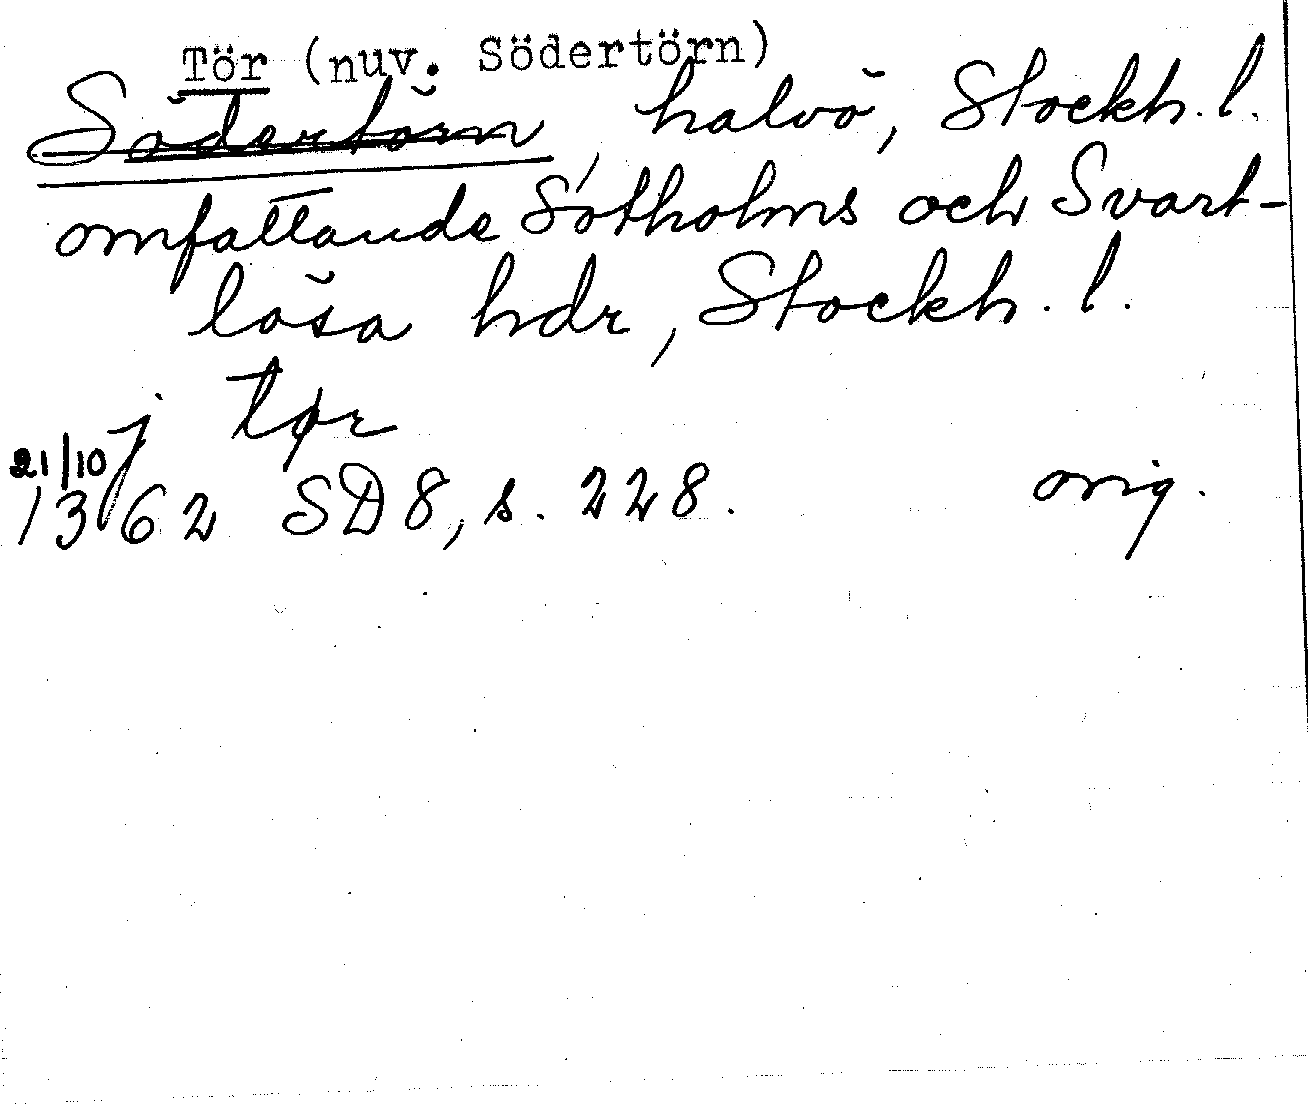 Tör (nuv. Södertörn)
Södertörn, halvö, Stockh. l.
omfattande Sotholms och Svart-
lösa hdr, Stockh. l.
j tør
21/10
1362 SD 8, s. 228. orig.